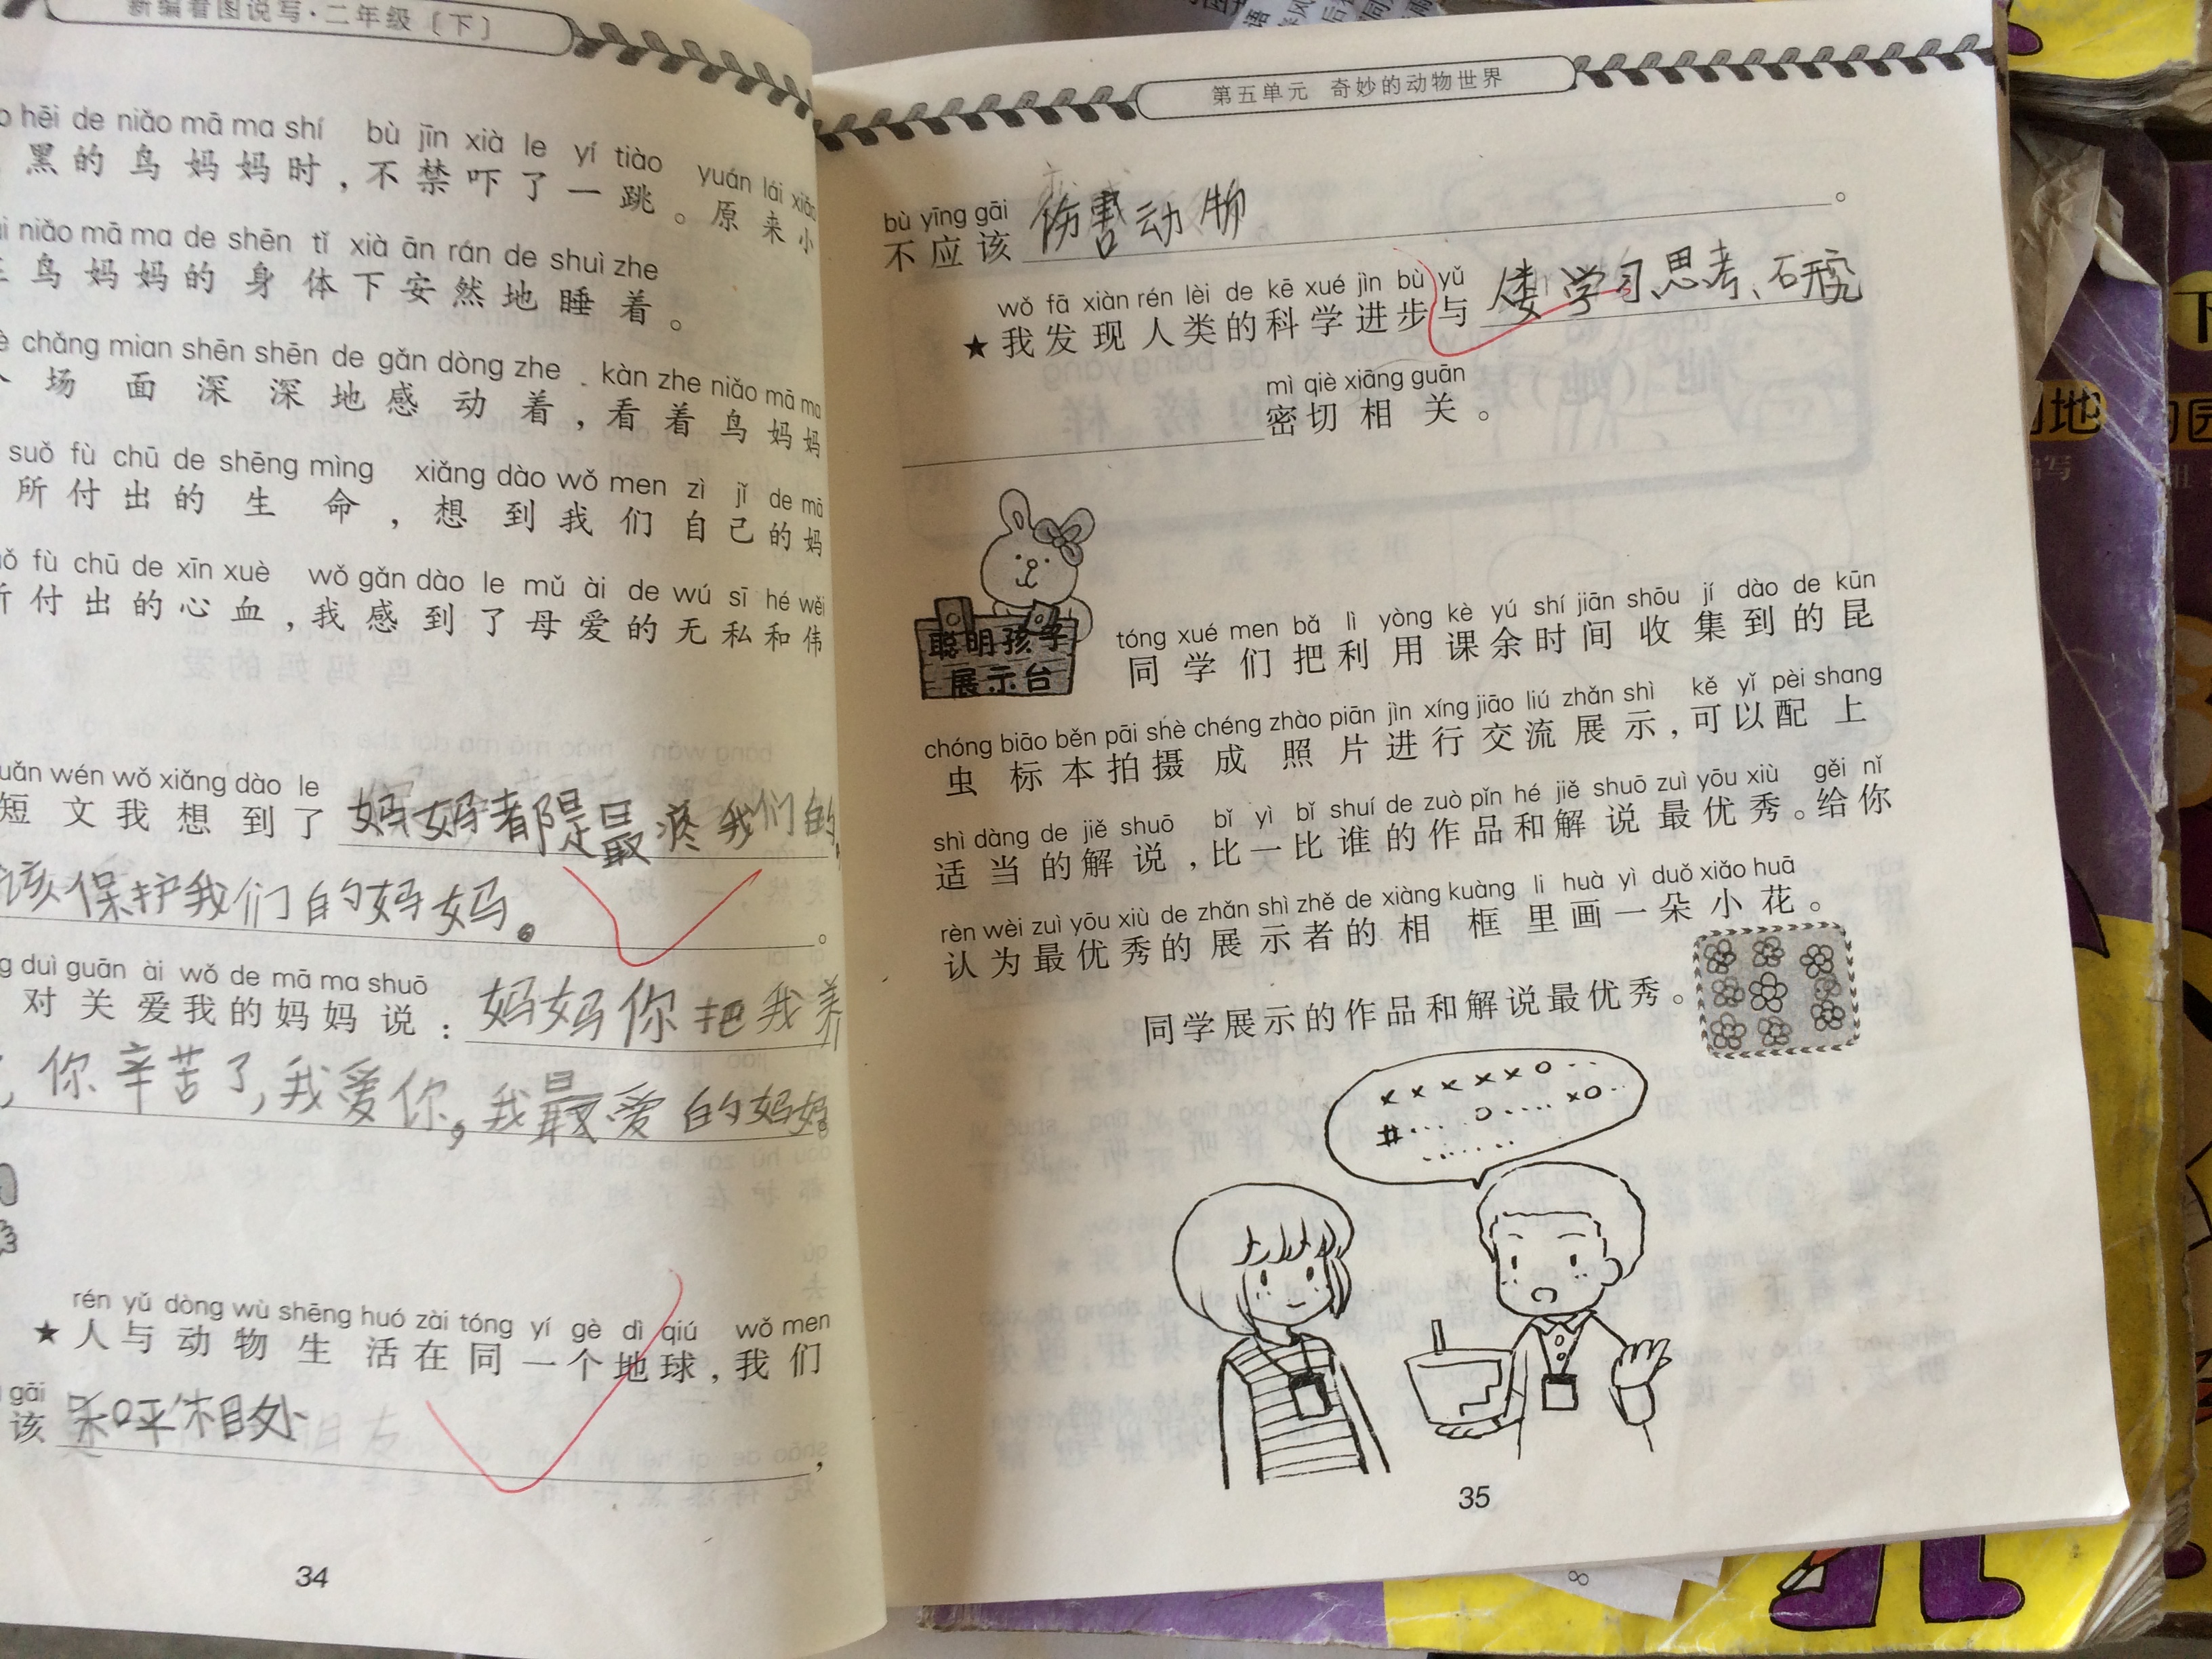 新编看图说写·二年级〔下〕
hēi de niǎo mā ma shí bù jīn xià le yí tiào yuán lái xiǎo
黑的鸟妈妈时，不禁吓了一跳。原来小
niǎo mā ma de shēn tǐ xià ān rán de shuì zhe
鸟妈妈的身体下安然地睡着。
chǎng mian shēn shēn de gǎn dòng zhe kàn zhe niǎo mā ma
场面深深地感动着，看着鸟妈妈
suǒ fù chū de shēng mìng xiǎng dào wǒ men zì jǐ de mā
所付出的生命，想到我们自己的妈
fù chū de xīn xuè wǒ gǎn dào le mǔ ài de wú sī hé wěi
付出的心血，我感到了母爱的无私和伟
wén wǒ xiǎng dào le
短文我想到了妈妈都是最疼我们的,
该保护我们的妈妈。。
duì guān ài wǒ de mā ma shuō
对关爱我的妈妈说：妈妈你把我养
，你辛苦了,我爱你,我最爱的妈妈。
rén yǔ dòng wù shēng huó zài tóng yí gè dì qiú wǒ men
★人与动物生活在同一个地球，我们
gāi
该 相处，
34
第五单元 奇妙的动物世界
bù yīng gāi
不应该伤害动物。
wǒ fā xiàn rén lèi de kē xué jìn bù yǔ
★我发现人类的科学进步与 学习、思考、研究
mì qiè xiāng guān
密切相关。
聪明孩子
展示台
tóng xué men bǎ lì yòng kè yú shí jiān shōu jí dào de kūn
同学们把利用课余时间收集到的昆
chóng biāo běn pāi shè chéng zhào piān jìn xíng jiāo liú zhǎn shì kě yǐ pèi shang
虫标本拍摄成照片进行交流展示，可以配上
shì dàng de jiě shuō bǐ yì bǐ shuí de zuò pǐn hé jiě shuō zuì yōu xiù gěi nǐ
适当的解说，比一比谁的作品和解说最优秀。给你
rèn wèi zuì yōu xiù de zhǎn shì zhě de xiàng kuàng li huà yì duǒ xiǎo huā
认为最优秀的展示者的相框里画一朵小花。
同学展示的作品和解说最优秀。
35